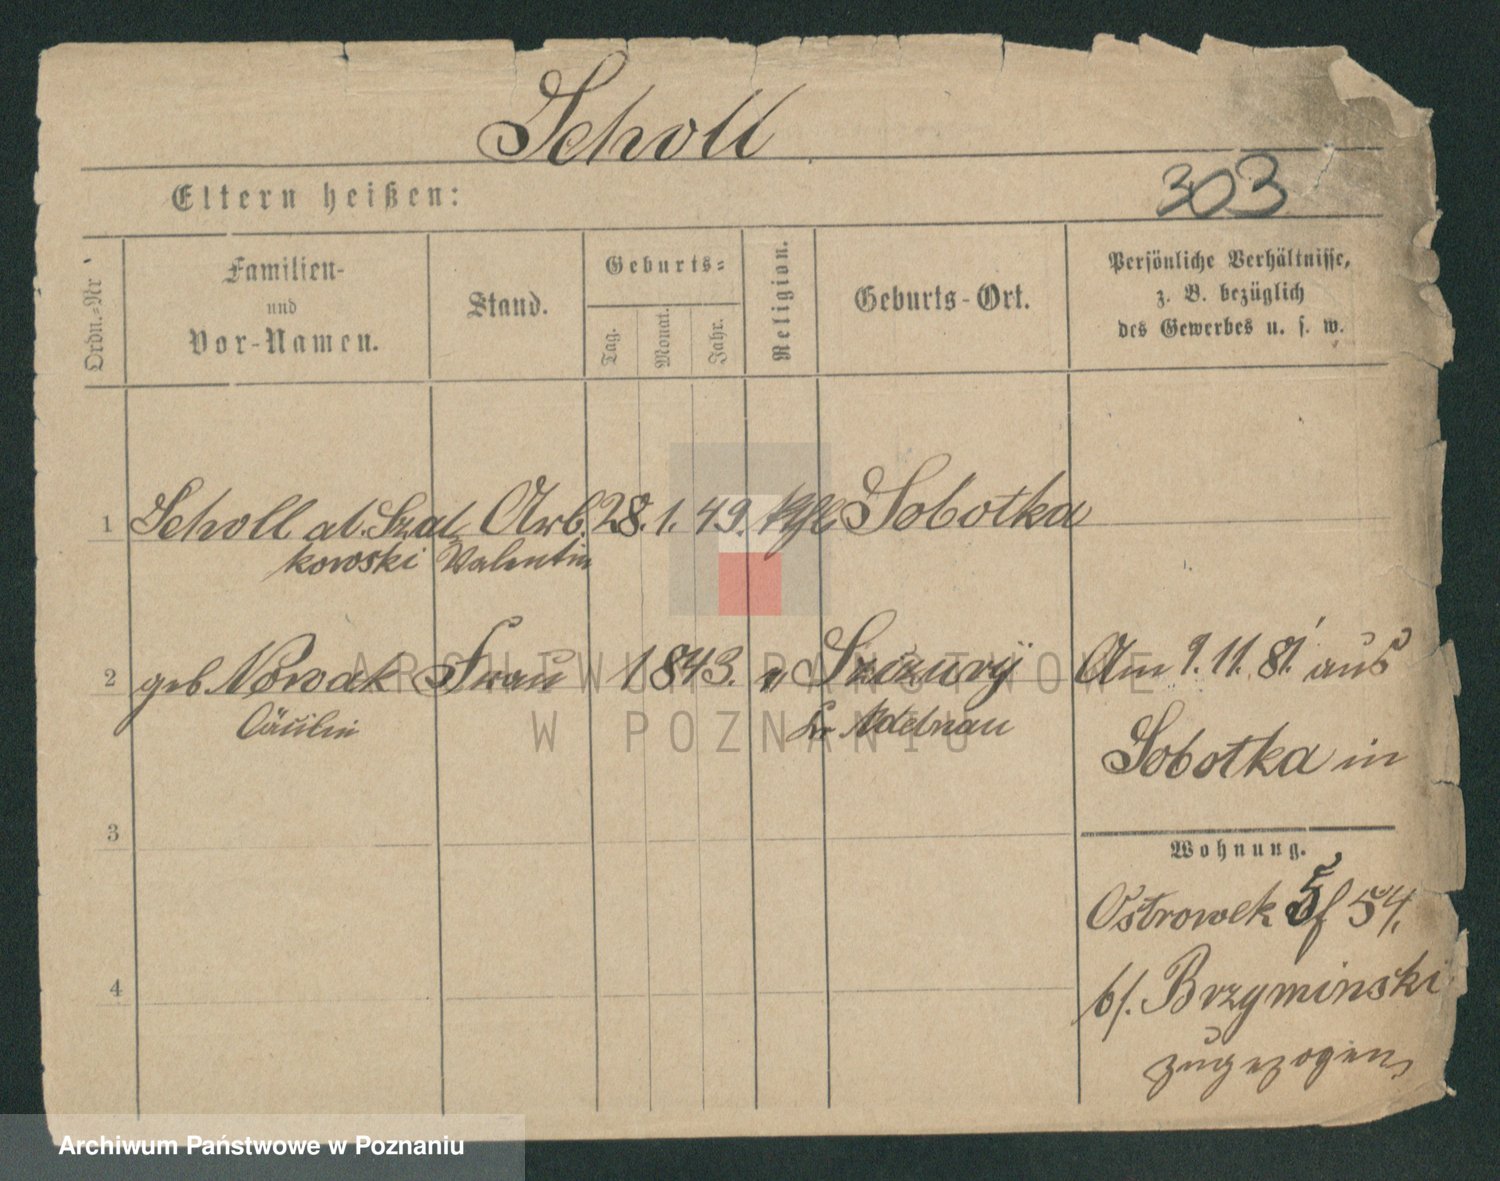 Scholl
Eltern heißen:
303
Ordn.-Nr
Familien-
und
Vor-Namen.
Stand.
Geburts-
Tag.
Monat.
Jahr.
Religion.
Geburts-Ort.
Persönliche Verhältnisse,
z. B. bezüglich
des Gewerbes u. s. w.
1 Scholl al. Szal Arb. 28. 1. 49. Sobotka
kowski Valentin
2 geb Nowak Frau 1843. " Szczury Am 9. 11. 81. aus
Cäcilie Kr Adelnau
Sobotka in
3
Wohnung.
Ostrowek 5/ 54.
4
b/. Brzyminski
zugezogen,
ARCHIWUM PAŃSTWOWE
W POZNANIU
Archiwum Państwowe w Poznaniu